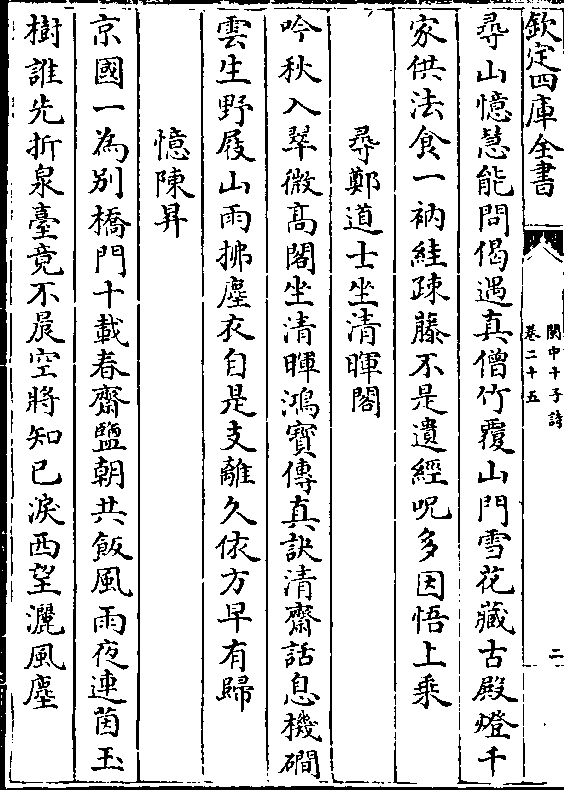 欽定四庫全書
閩中十子詩
卷二十五
二
尋山憶慧能問偈遇真僧竹覆山門雪花藏古殿燈千
家供法食一衲絓疎藤不是遺經呪多因悟上乘
尋鄭道士坐清暉閣
吟秋入翠微高閣坐清暉鴻寶傳真訣清齋話息機磵
雲生野屐山雨拂塵衣自是支離久依方早有歸
憶陳昇
京國一為別橋門十載春齋鹽朝共飯風雨夜連茵玉
樹誰先折泉臺竟不晨空將知已淚西望灑風塵